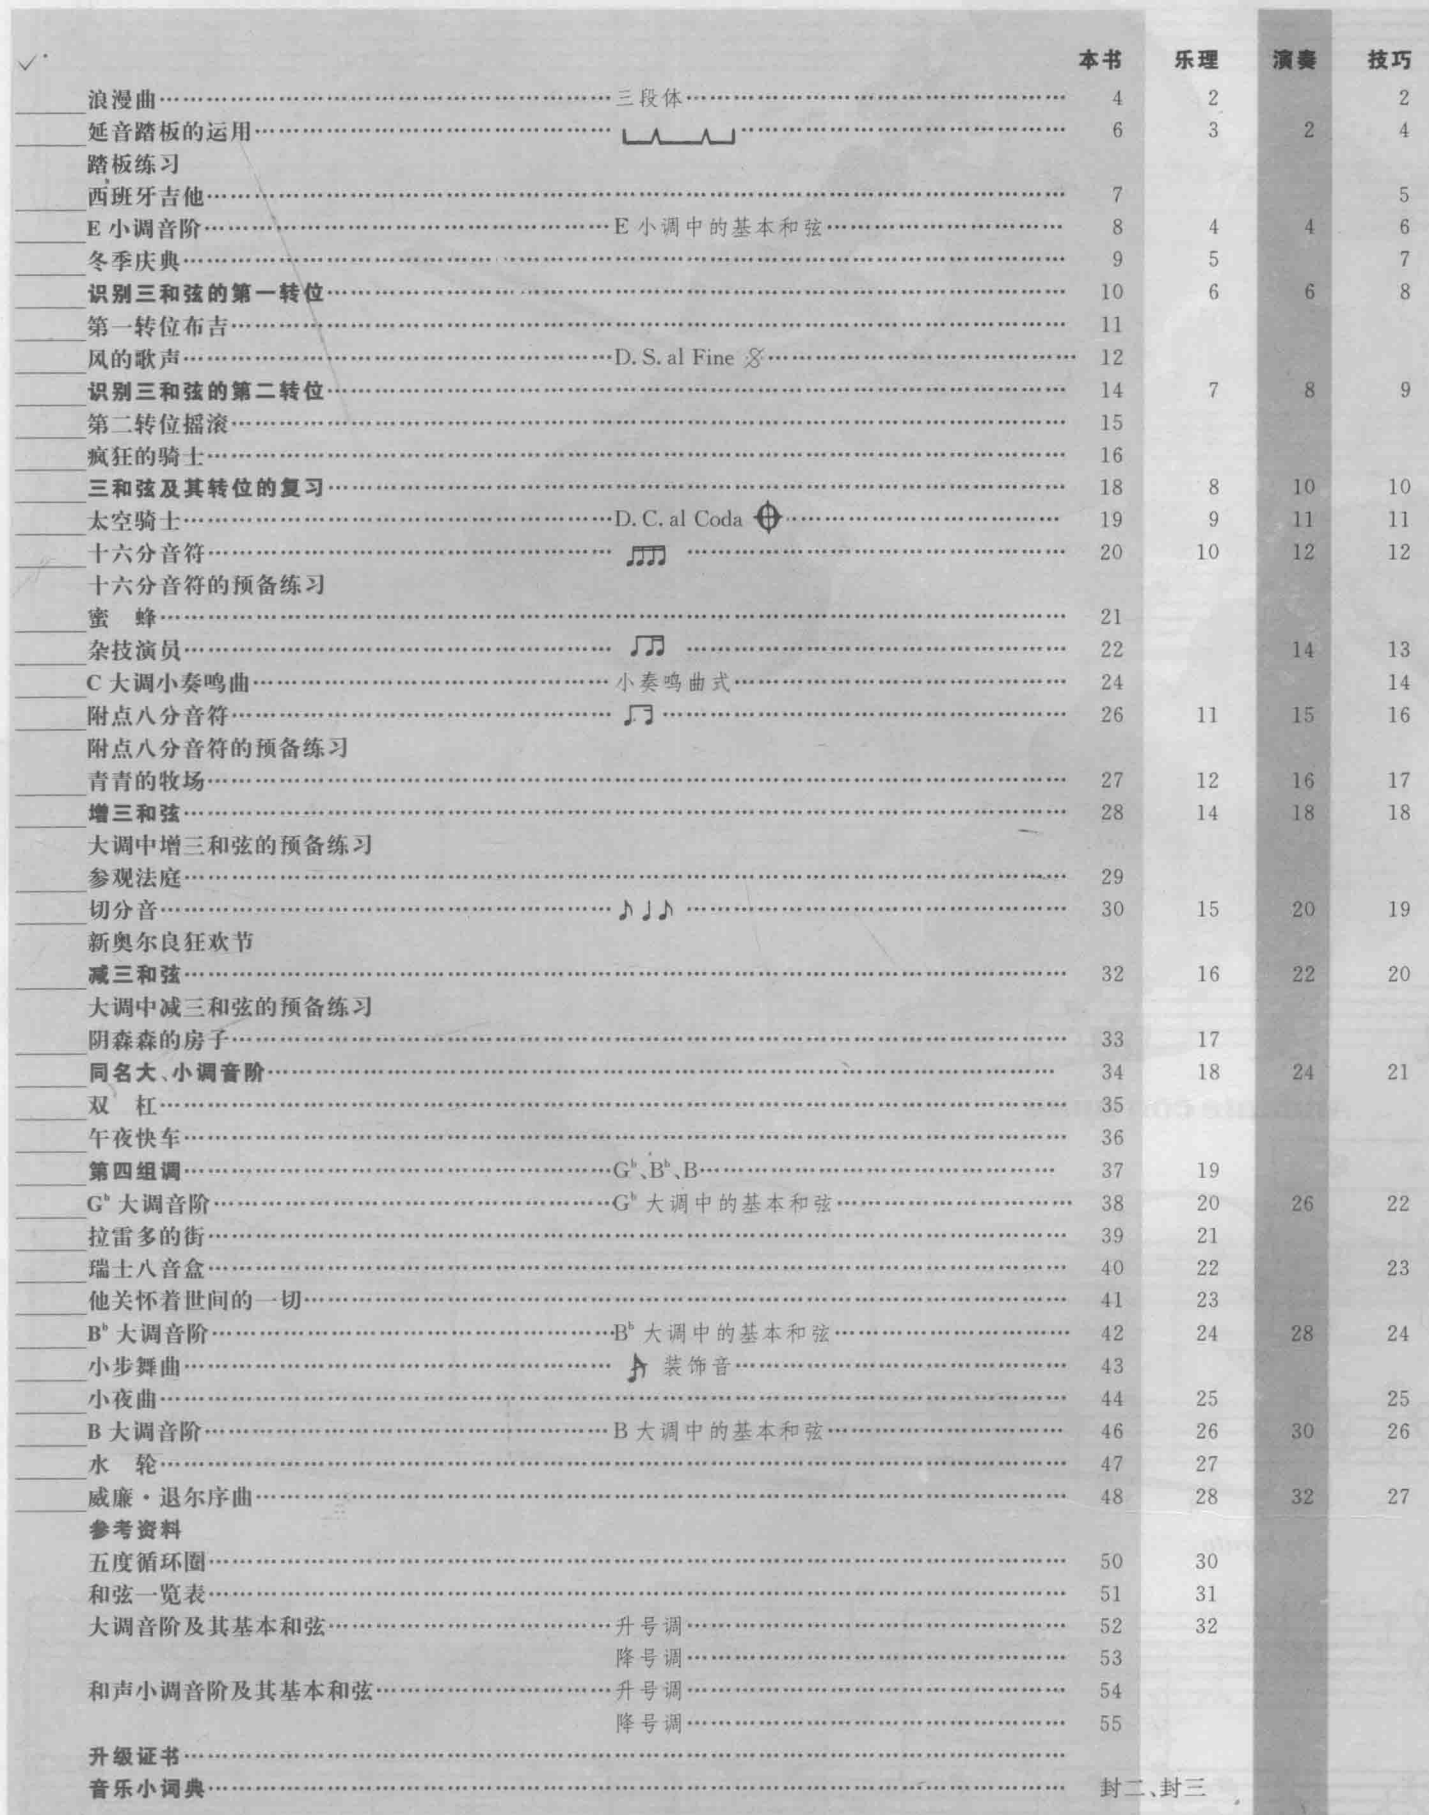 本书 乐理 演奏 技巧
浪漫曲……三段体…… 4 2 2
延音踏板的运用…… 6 3 2 4
踏板练习
西班牙吉他…… 7 5
E 小调音阶……E 小调中的基本和弦…… 8 4 4 6
冬季庆典…… 9 5 7
识别三和弦的第一转位…… 10 6 6 8
第一转位布吉…… 11
风的歌声……D. S. al Fine 𝄋…… 12
识别三和弦的第二转位…… 14 7 8 9
第二转位摇滚…… 15
疯狂的骑士…… 16
三和弦及其转位的复习…… 18 8 10 10
太空骑士……D. C. al Coda 𝄌…… 19 9 11 11
十六分音符…… 20 10 12 12
十六分音符的预备练习
蜜 蜂…… 21
杂技演员…… 22 14 13
C 大调小奏鸣曲……小奏鸣曲式…… 24 14
附点八分音符…… 26 11 15 16
附点八分音符的预备练习
青青的牧场…… 27 12 16 17
增三和弦…… 28 14 18 18
大调中增三和弦的预备练习
参观法庭…… 29
切分音……♪♩♪…… 30 15 20 19
新奥尔良狂欢节
减三和弦…… 32 16 22 20
大调中减三和弦的预备练习
阴森森的房子…… 33 17
同名大、小调音阶…… 34 18 24 21
双 杠…… 35
午夜快车…… 36
第四组调……G♭、B♭、B…… 37 19
G♭ 大调音阶……G♭ 大调中的基本和弦…… 38 20 26 22
拉雷多的街…… 39 21
瑞士八音盒…… 40 22 23
他关怀着世间的一切…… 41 23
B♭ 大调音阶……B♭ 大调中的基本和弦…… 42 24 28 24
小步舞曲……装饰音…… 43
小夜曲…… 44 25 25
B 大调音阶……B 大调中的基本和弦…… 46 26 30 26
水 轮…… 47 27
威廉·退尔序曲…… 48 28 32 27
参考资料
五度循环圈…… 50 30
和弦一览表…… 51 31
大调音阶及其基本和弦……升号调…… 52 32
降号调…… 53
和声小调音阶及其基本和弦……升号调…… 54
降号调…… 55
升级证书……
音乐小词典…… 封二、封三